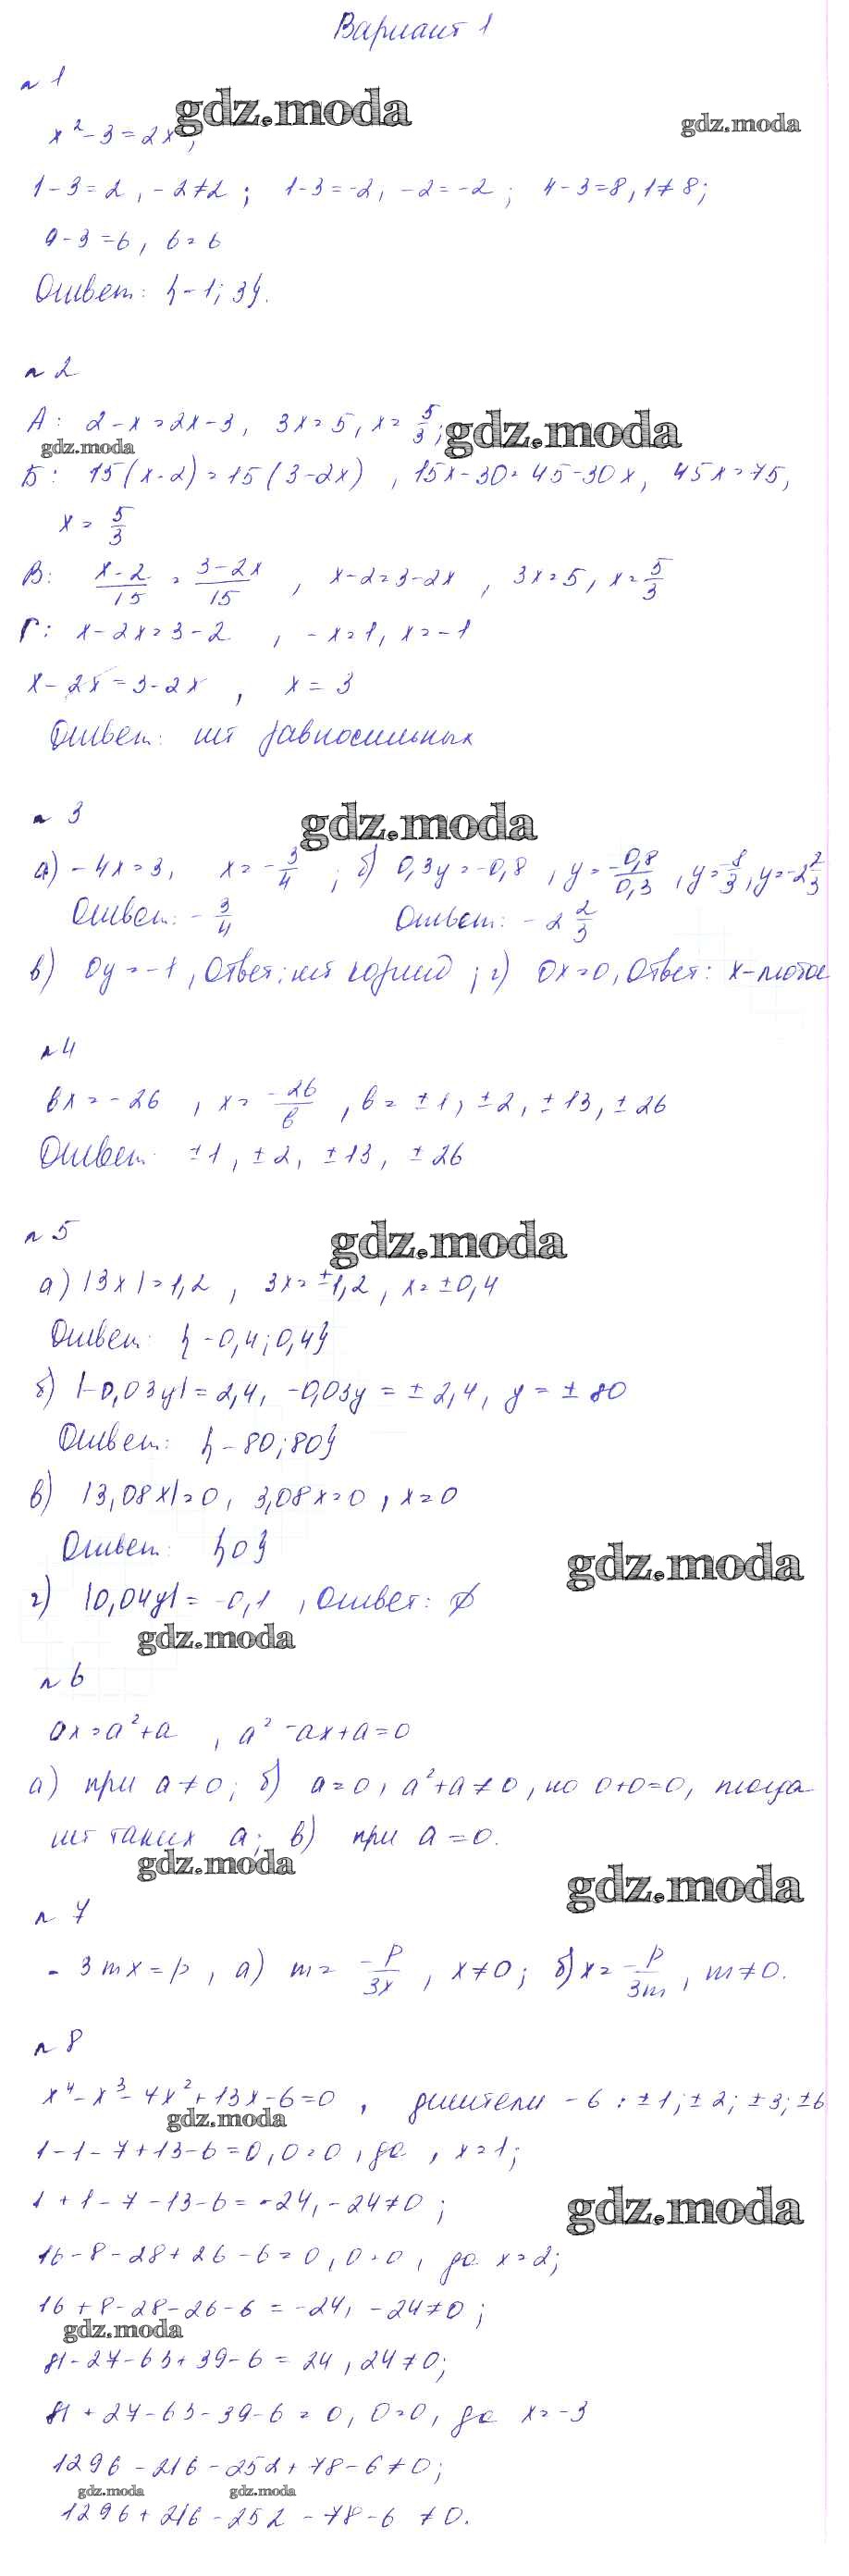 Вариант 1
№ 1
gdz.moda
gdz.moda
x² - 3 = 2x;
1 - 3 = 2, -2 ≠ 2; 1 - 3 = -2, -2 = -2; 4 - 3 = 8, 1 ≠ 8;
9 - 3 = 6, 6 = 6
Ответ: {-1; 3}.
№ 2
А: 2 - x = 2x - 3, 3x = 5, x = 5/3;
gdz.moda
gdz.moda
Б: 15(x - 2) = 15(3 - 2x), 15x - 30 = 45 - 30x, 45x = 75,
x = 5/3
В: (x - 2)/15 = (3 - 2x)/15, x - 2 = 3 - 2x, 3x = 5, x = 5/3
Г: x - 2x = 3 - 2, -x = 1, x = -1
x - 2x = 3 - 2x, x = 3
Ответ: нет равносильных
№ 3
gdz.moda
а) -4x = 3, x = -3/4; б) 0,3y = -0,8, y = -0,8/0,3, y = -8/3, y = -2 2/3
Ответ: -3/4 Ответ: -2 2/3
в) 0y = -1, Ответ: нет корней; г) 0x = 0, Ответ: x - любое
№ 4
bx = -26, x = -26/b, b = ±1, ±2, ±13, ±26
Ответ: ±1, ±2, ±13, ±26
№ 5
gdz.moda
а) |3x| = 1,2, 3x = ±1,2, x = ±0,4
Ответ: {-0,4; 0,4}
б) |-0,03y| = 2,4, -0,03y = ±2,4, y = ±80
Ответ: {-80; 80}
в) |3,08x| = 0, 3,08x = 0, x = 0
Ответ: {0}
gdz.moda
г) |0,04y| = -0,1, Ответ: ∅
gdz.moda
№ 6
ax = a² + a, a² - ax + a = 0
а) при a ≠ 0; б) a = 0, a² + a ≠ 0, но 0 + 0 = 0, тогда
нет таких a; в) при a = 0.
gdz.moda
gdz.moda
№ 7
-3mx = p, а) m = -p/3x, x ≠ 0; б) x = -p/3m, m ≠ 0.
№ 8
x⁴ - x³ - 7x² + 13x - 6 = 0, делители -6: ±1; ±2; ±3; ±6
gdz.moda
1 - 1 - 7 + 13 - 6 = 0, 0 = 0, да, x = 1;
1 + 1 - 7 - 13 - 6 = -24, -24 ≠ 0;
gdz.moda
16 - 8 - 28 + 26 - 6 = 0, 0 = 0, да x = 2;
16 + 8 - 28 - 26 - 6 = -24, -24 ≠ 0;
gdz.moda
81 - 27 - 63 + 39 - 6 = 24, 24 ≠ 0;
81 + 27 - 63 - 39 - 6 = 0, 0 = 0, да x = -3
1296 - 216 - 252 + 78 - 6 ≠ 0;
gdz.moda gdz.moda
1296 + 216 - 252 - 78 - 6 ≠ 0.